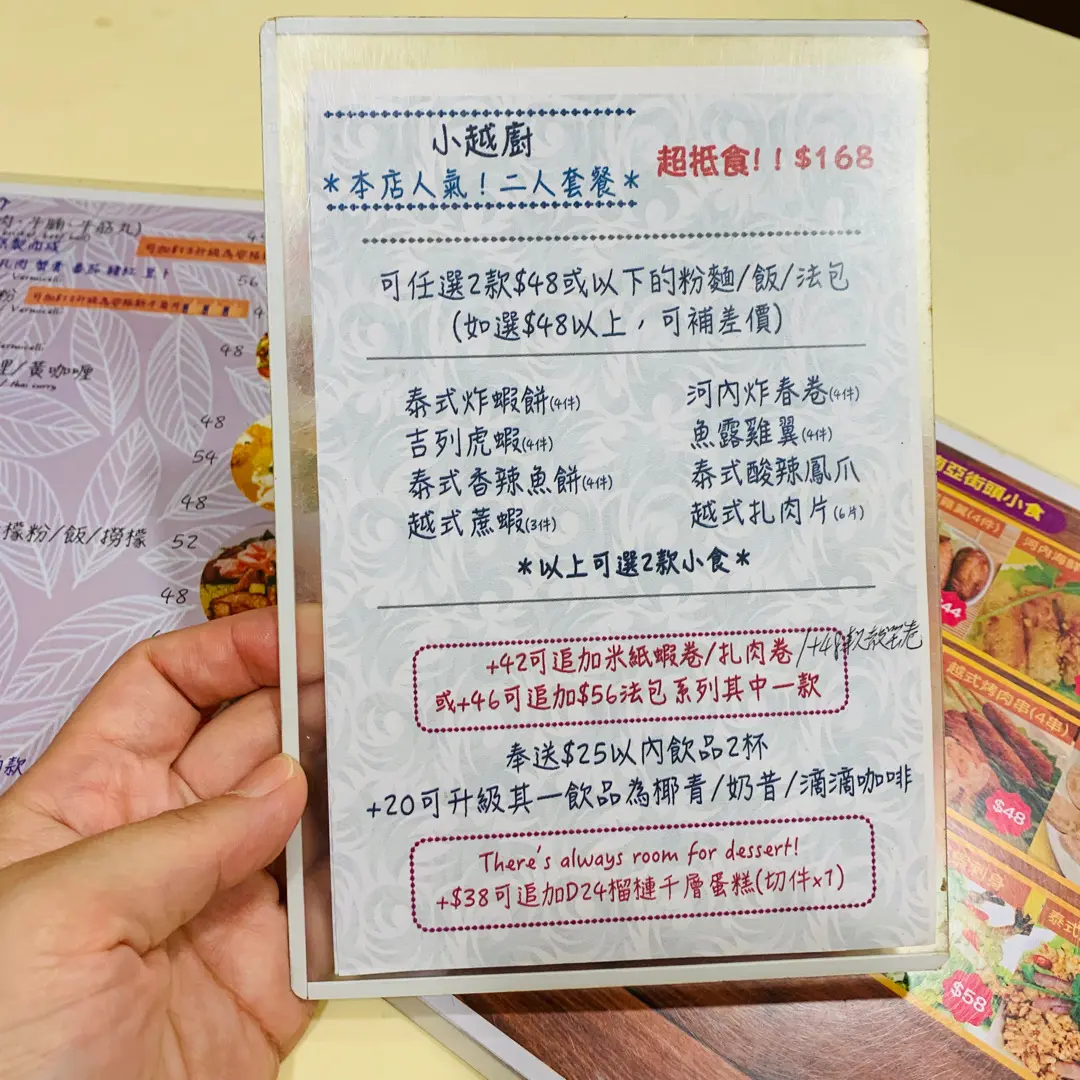 小越廚
*本店人氣！二人套餐*
超抵食!！$168
可任選2款$48或以下的粉麵/飯/法包
(如選$48以上，可補差價)
泰式炸蝦餅(4件)
河內炸春卷(4件)
吉列虎蝦(4件)
魚露雞翼(4件)
泰式香辣魚餅(4件)
泰式酸辣鳳爪
越式蔗蝦(3件)
越式扎肉片(6片)
*以上可選2款小食*
+42可追加米紙蝦卷/扎肉卷 /+48軟殼蟹卷
或+46可追加$56法包系列其中一款
奉送$25以內飲品2杯
+20可升級其一飲品為椰青/奶昔/滴滴咖啡
There's always room for dessert!
+$38可追加D24榴槤千層蛋糕(切件x1)
肉·牛腩·牛筋丸)
56
48
/黃咖喱
48
54
48
檬粉/飯/撈檬 52
48
亞街頭小食
(4件)
河內海鮮
$44
越式烤肉串(4串)
$48
$58
泰式